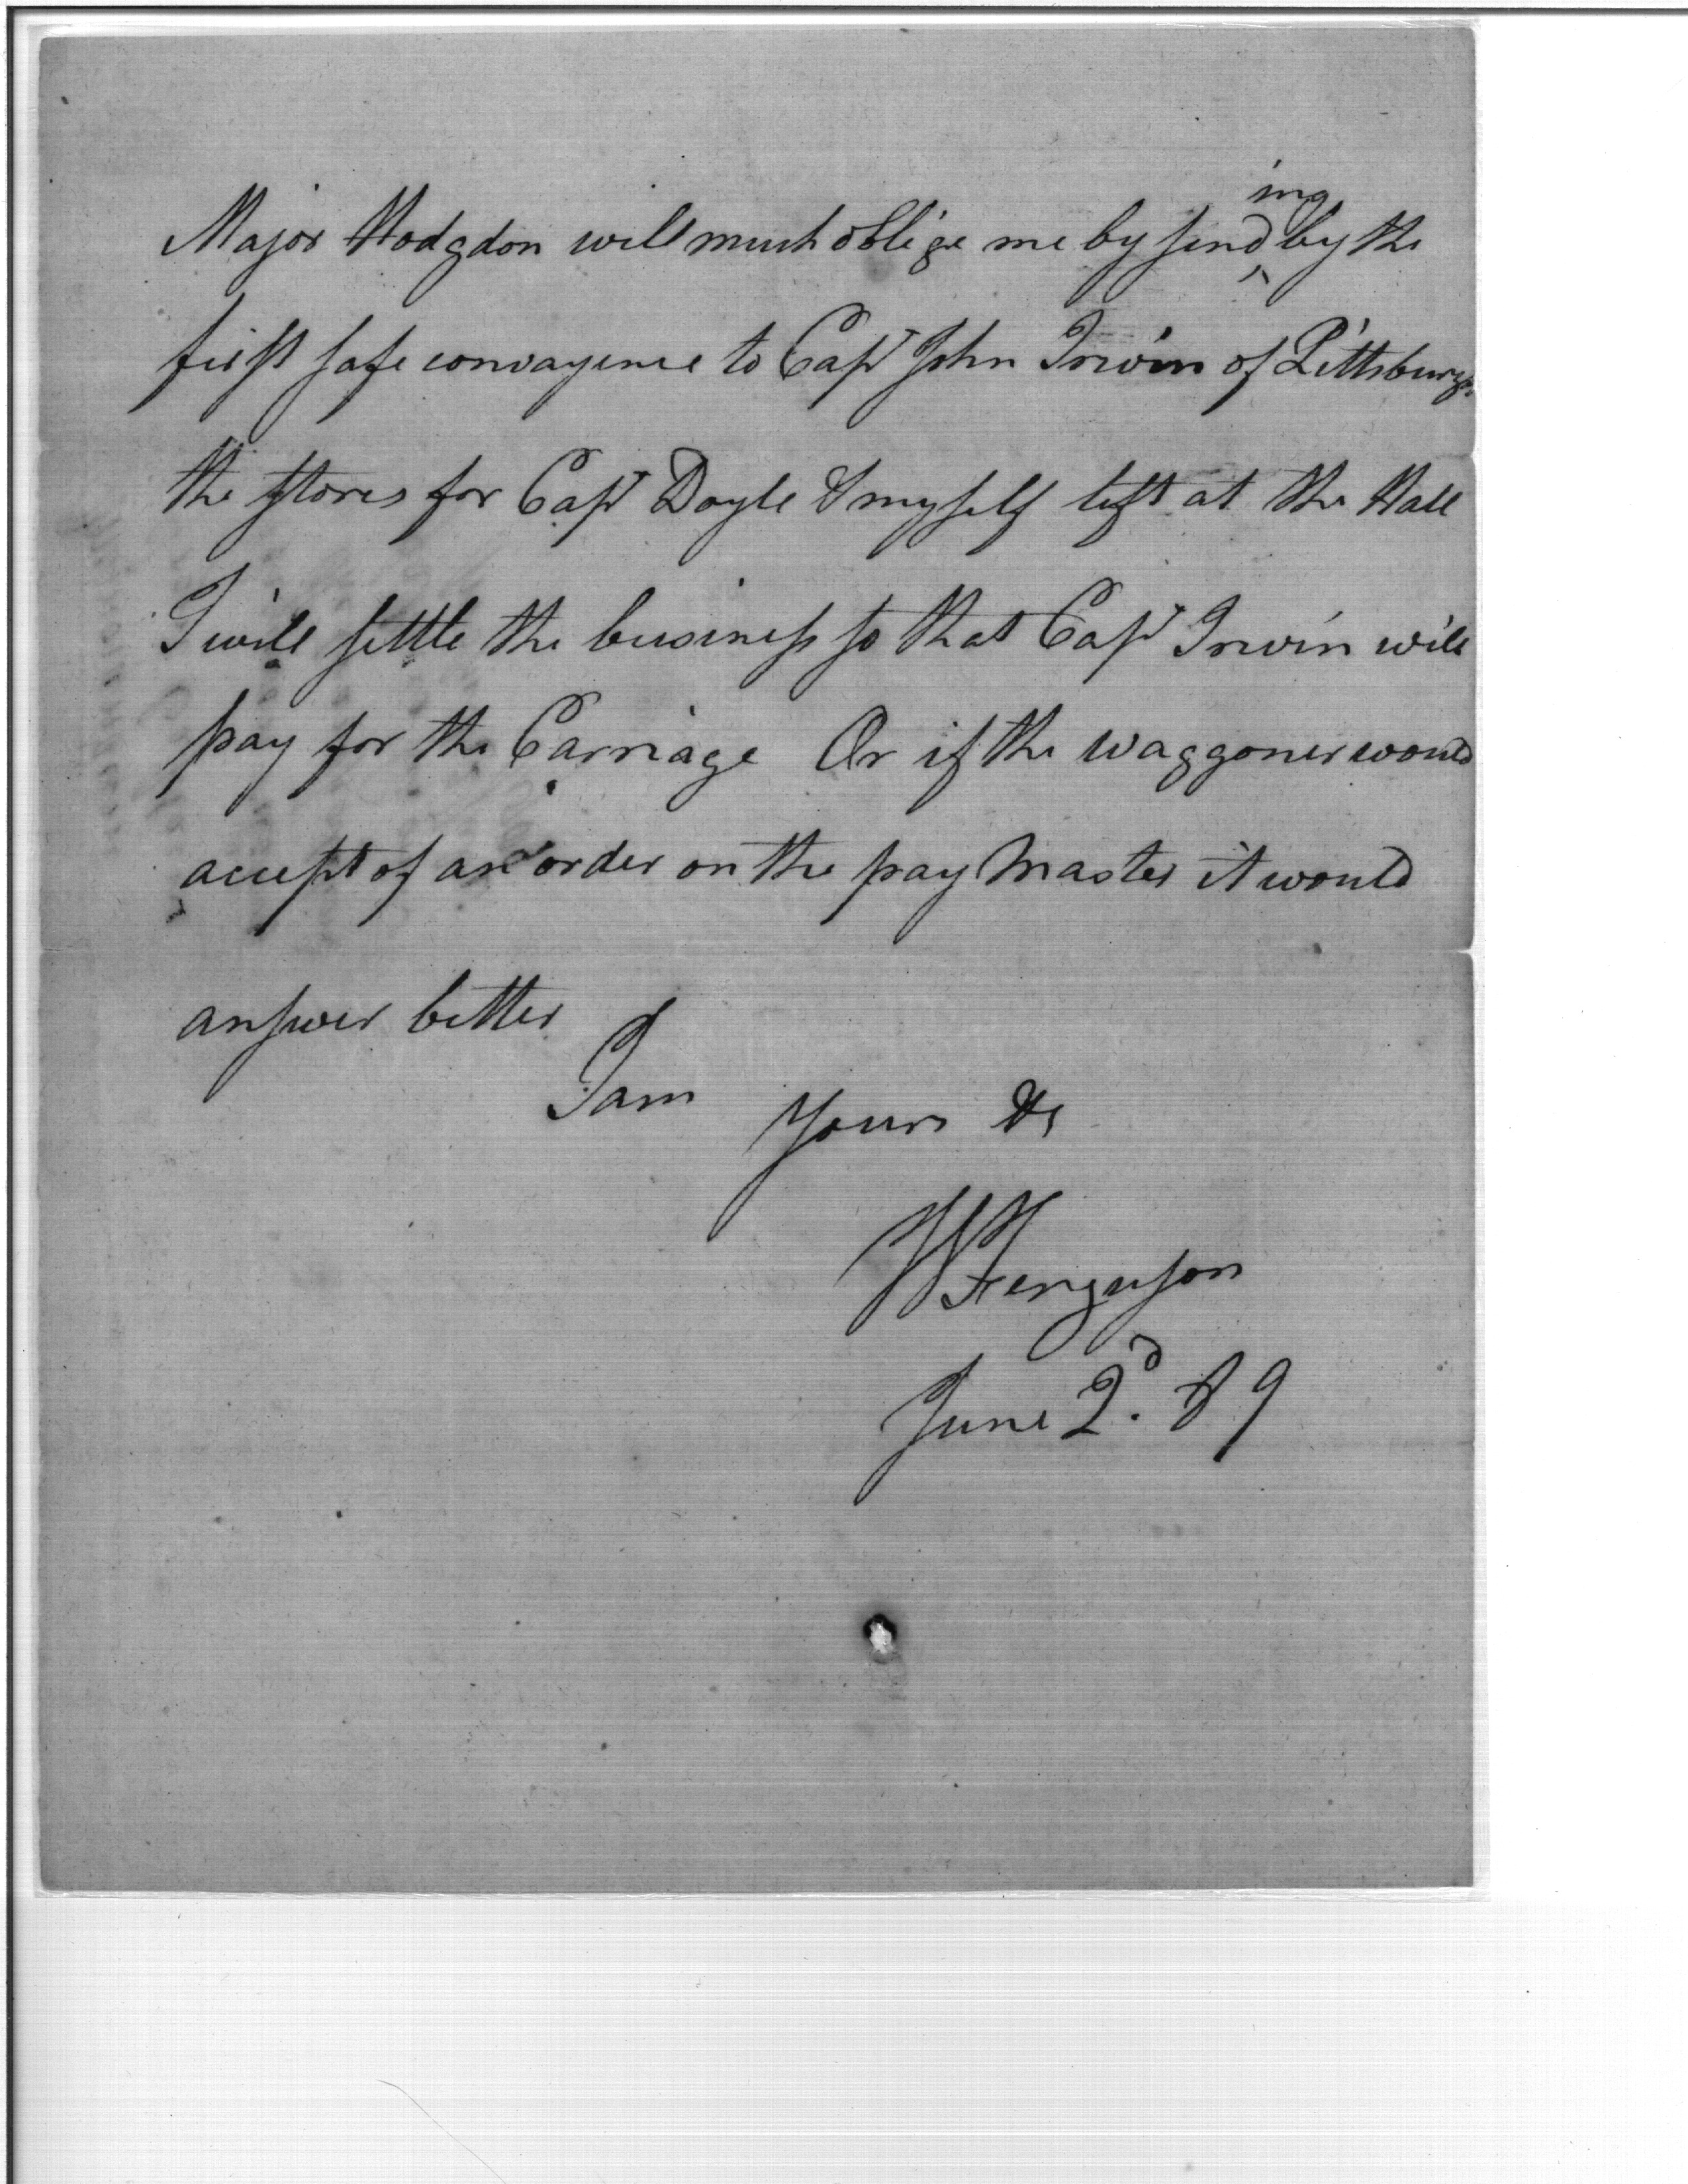 Major Hodgdon will much oblige me by sending by the
first safe convayence to Capt John Irwin of Pittsburgh
the stores for Capt Doyle & myself left at the Hall
I will settle the business so that Capt Irwin will
pay for the Carriage Or if the waggoner would
accept of an order on the pay Master it would
answer better
I am
yours &c
W Ferguson
June 2d. 89